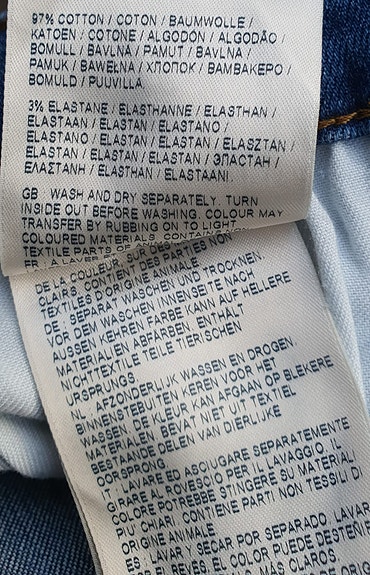 97% COTTON / COTON / BAUMWOLLE /
KATOEN / COTONE / ALGODÓN / ALGODÃO /
BOMULL / BAVLNA / PAMUT / BAVLNA /
PAMUK / BAWEŁNA / ХЛОПОК / ΒΑΜΒΑΚΕΡΟ /
BOMULD / PUUVILLA
3% ELASTANE / ELASTHANNE / ELASTHAN /
ELASTAAN / ELASTAN / ELASTANO /
ELASTANO / ELASTAN / ELASTAN / ELASZTAN /
ELASTAN / ELASTAN / ELASTAN / ЭЛАСТАН /
ΕΛΑΣΤΑΝΗ / ELASTHAN / ELASTAANI.
GB : WASH AND DRY SEPARATELY. TURN
INSIDE OUT BEFORE WASHING. COLOUR MAY
TRANSFER BY RUBBING ON TO LIGHT
COLOURED MATERIALS. CONTAIN
TEXTILE PARTS OF
FR : A LAVER
DE LA COULEUR, SUR DES
CLAIRS. CONTIENT DES PARTIES NON
TEXTILES D'ORIGINE ANIMALE.
DE : SEPARAT WASCHEN UND TROCKNEN.
VOR DEM WASCHEN INNENSEITE NACH
AUSSEN KEHREN FARBE KANN AUF HELLERE
MATERIALIEN ABFÄRBEN. ENTHÄLT
NICHTTEXTILE TEILE TIERISCHEN
URSPRUNGS.
NL : AFZONDERLIJK WASSEN EN DROGEN.
BINNENSTEBUITEN KEREN VOOR HET
WASSEN. DE KLEUR KAN AFGAAN OP BLEKERE
MATERIALEN. BEVAT NIET UIT TEXTIEL
BESTAANDE DELEN VAN DIERLIJKE
OORSPRONG.
IT : LAVARE ED ASCIUGARE SEPARATEMENTE
GIRARE AL ROVESCIO PER IL LAVAGGIO. IL
COLORE POTREBBE STINGERE SU MATERIALI
PIÙ CHIARI. CONTIENE PARTI NON TESSILI DI
ORIGINE ANIMALE.
ES : LAVAR Y SECAR POR SEPARADO. LAVAR
DEL REVÉS. EL COLOR PUEDE DESTEÑI
MÁS CLAROS.